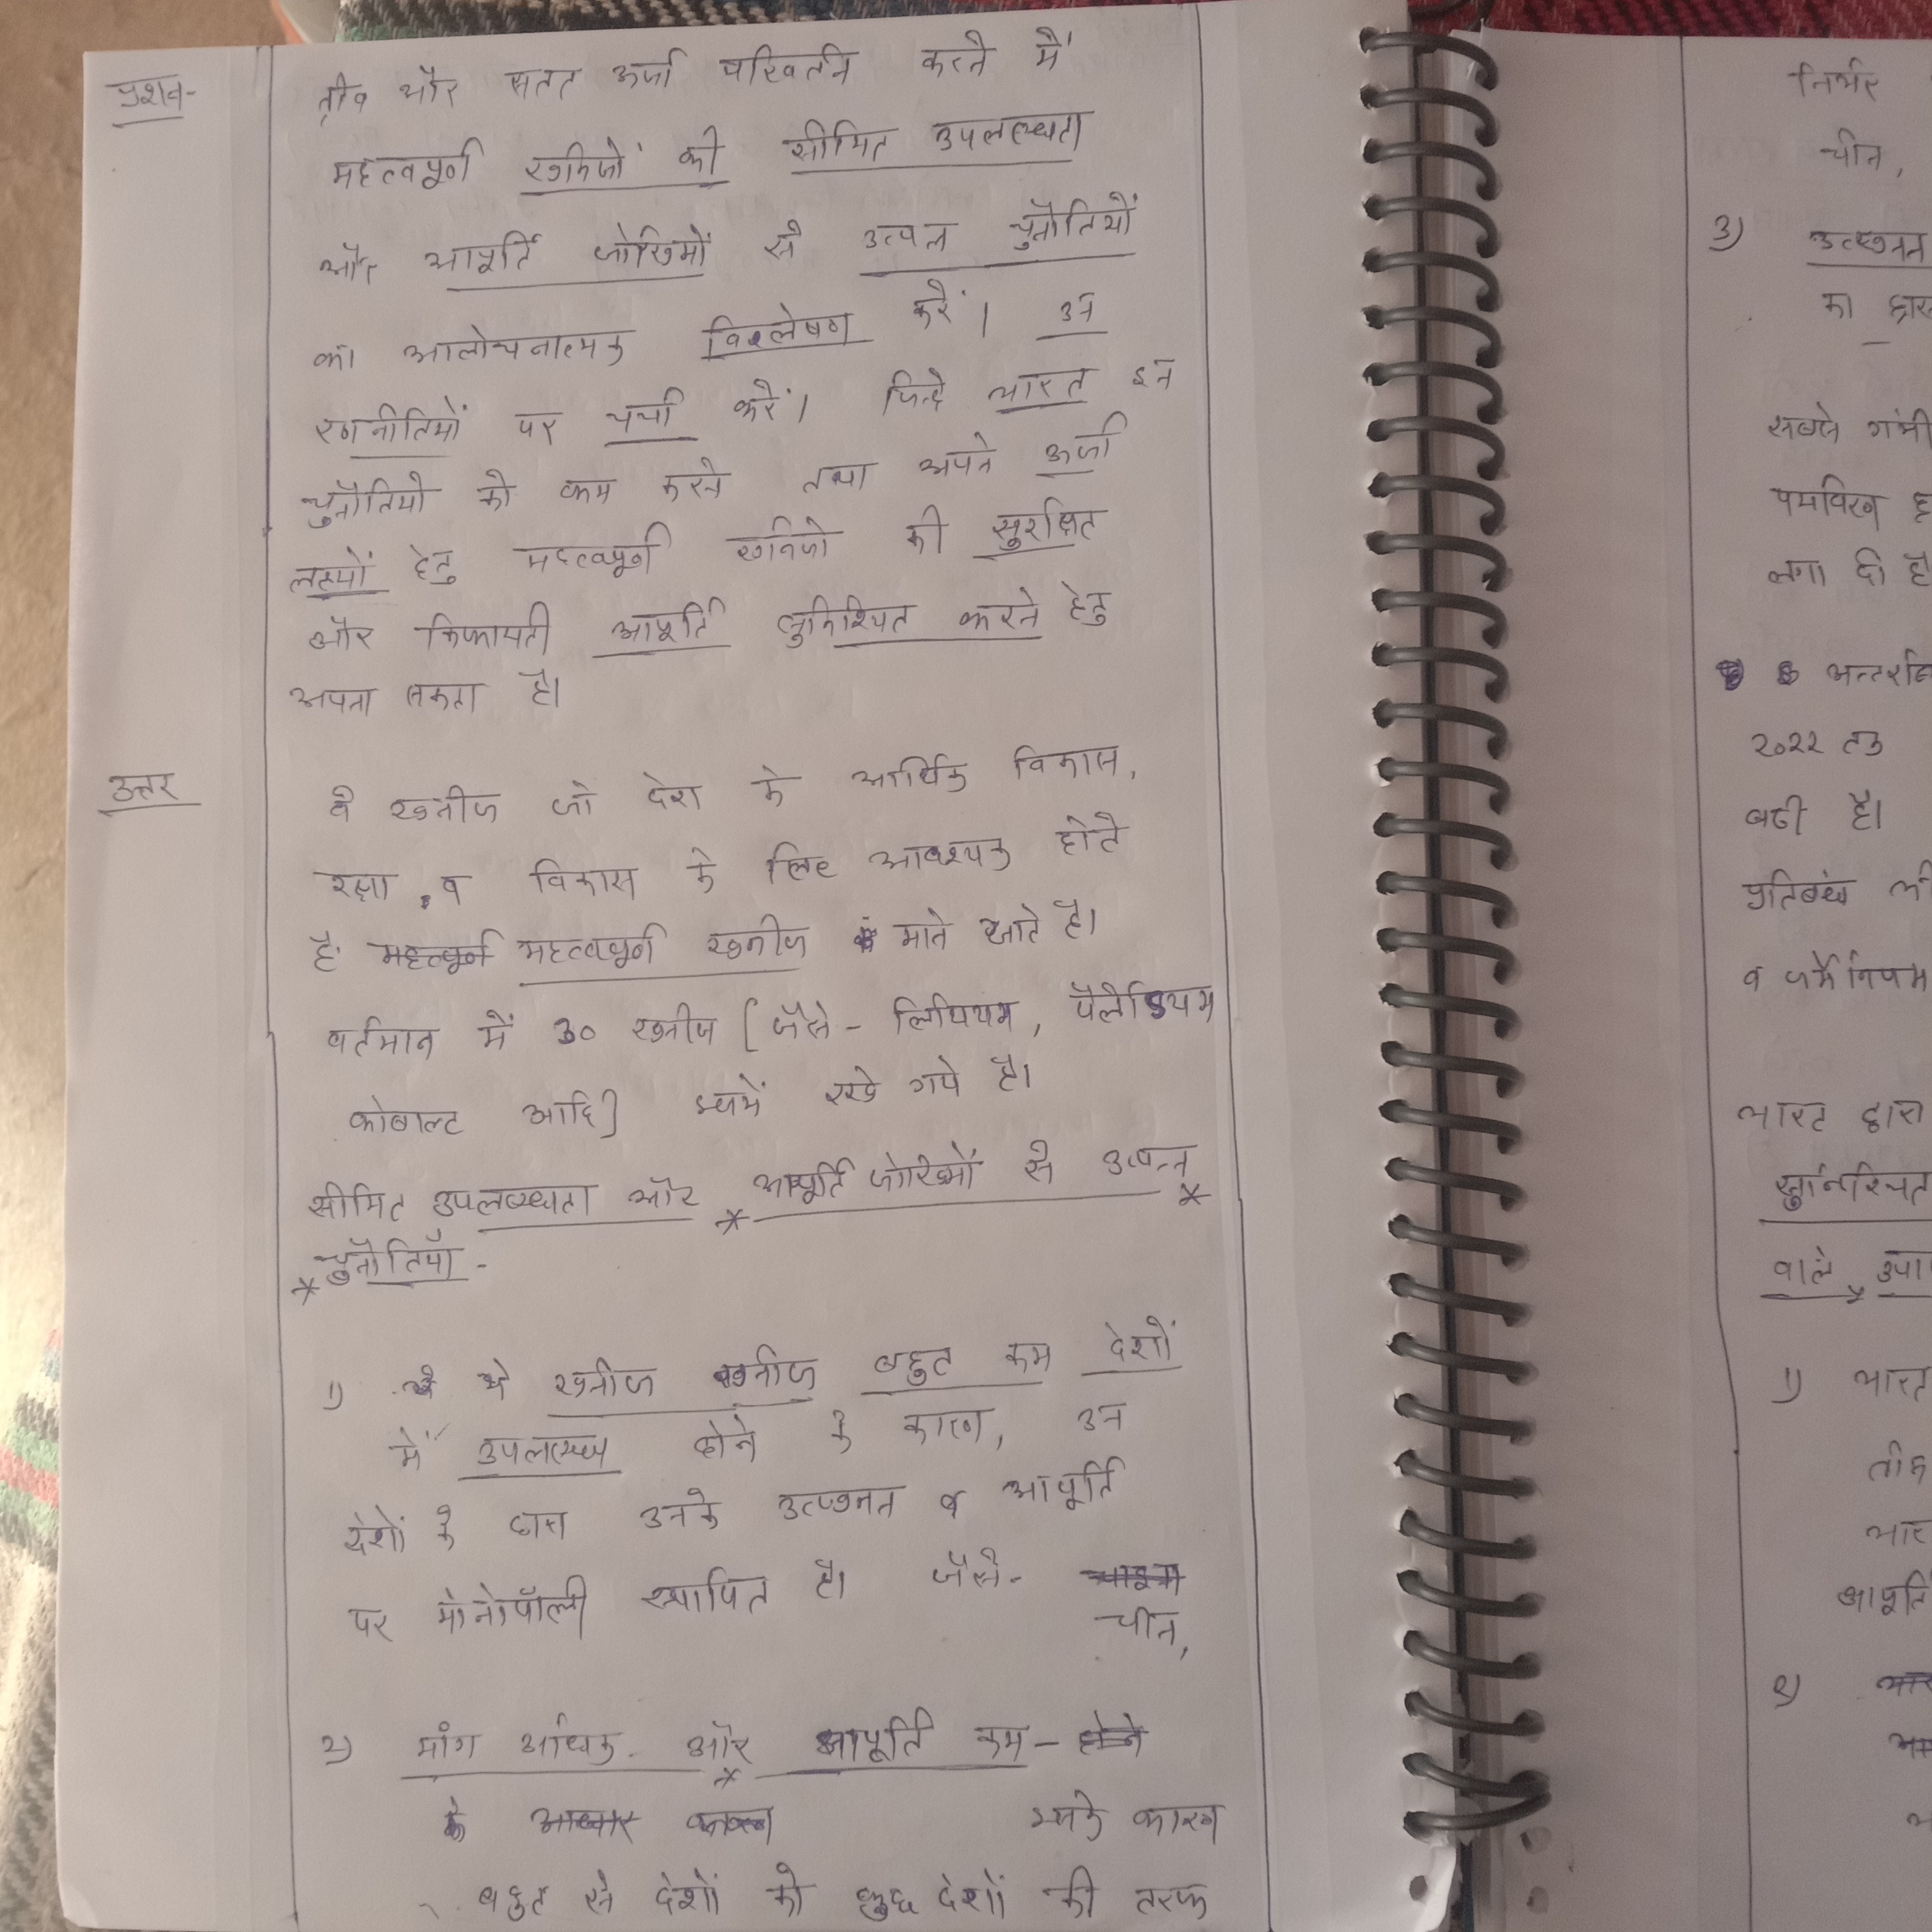 प्रश्न-
तीव्र और सतत ऊर्जा परिवर्तन करने में
महत्वपूर्ण खनिजों की सीमित उपलब्धता
और आपूर्ति जोखिमों से उत्पन्न चुनौतियों
का आलोचनात्मक विश्लेषण करें। उन
रणनीतियों पर चर्चा करें। जिन्हे भारत इन
चुनौतियो को कम करने तथा अपने ऊर्जा
लक्ष्यों हेतु महत्वपूर्ण खनिजो की सुरक्षित
और किफायती आपूर्ति सुनिश्चित करने हेतु
अपना सकता है।
उत्तर
वे खनीज जो देश के आर्थिक विकास,
रक्षा, व विकास के लिए आवश्यक होते
है महत्वपूर्ण महत्वपूर्ण खनीज माने जाते है।
वर्तमान में 30 खनीज [जैसे- लिथियम, पैलेडियम
कोबाल्ट आदि] इसमें रखे गये है।
सीमित उपलब्धता और आपूर्ति जोखिमों से उत्पन्न
चुनौतियाँ -
1) ये खनीज खनीज बहुत कम देशों
में उपलब्ध होने के कारण, उन
देशों के द्वारा उनके उत्खनन व आपूर्ति
पर मोनोपॉली स्थापित है। जैसे-
चीन,
2) मांग अधिक और आपूर्ति कम- होने
के आधार इसके कारण
बहुत से देशों को कुछ देशों की तरफ
निर्भर
चीन,
3) उत्खनन
का
सबसे
पर्यावरण
लगा दी है
2022 तक
बढी है।
प्रतिबंध
व जर्मेनियम
भारत द्वारा
सुनिश्चित
वाले
1) भारत
आपूर्ति
2)